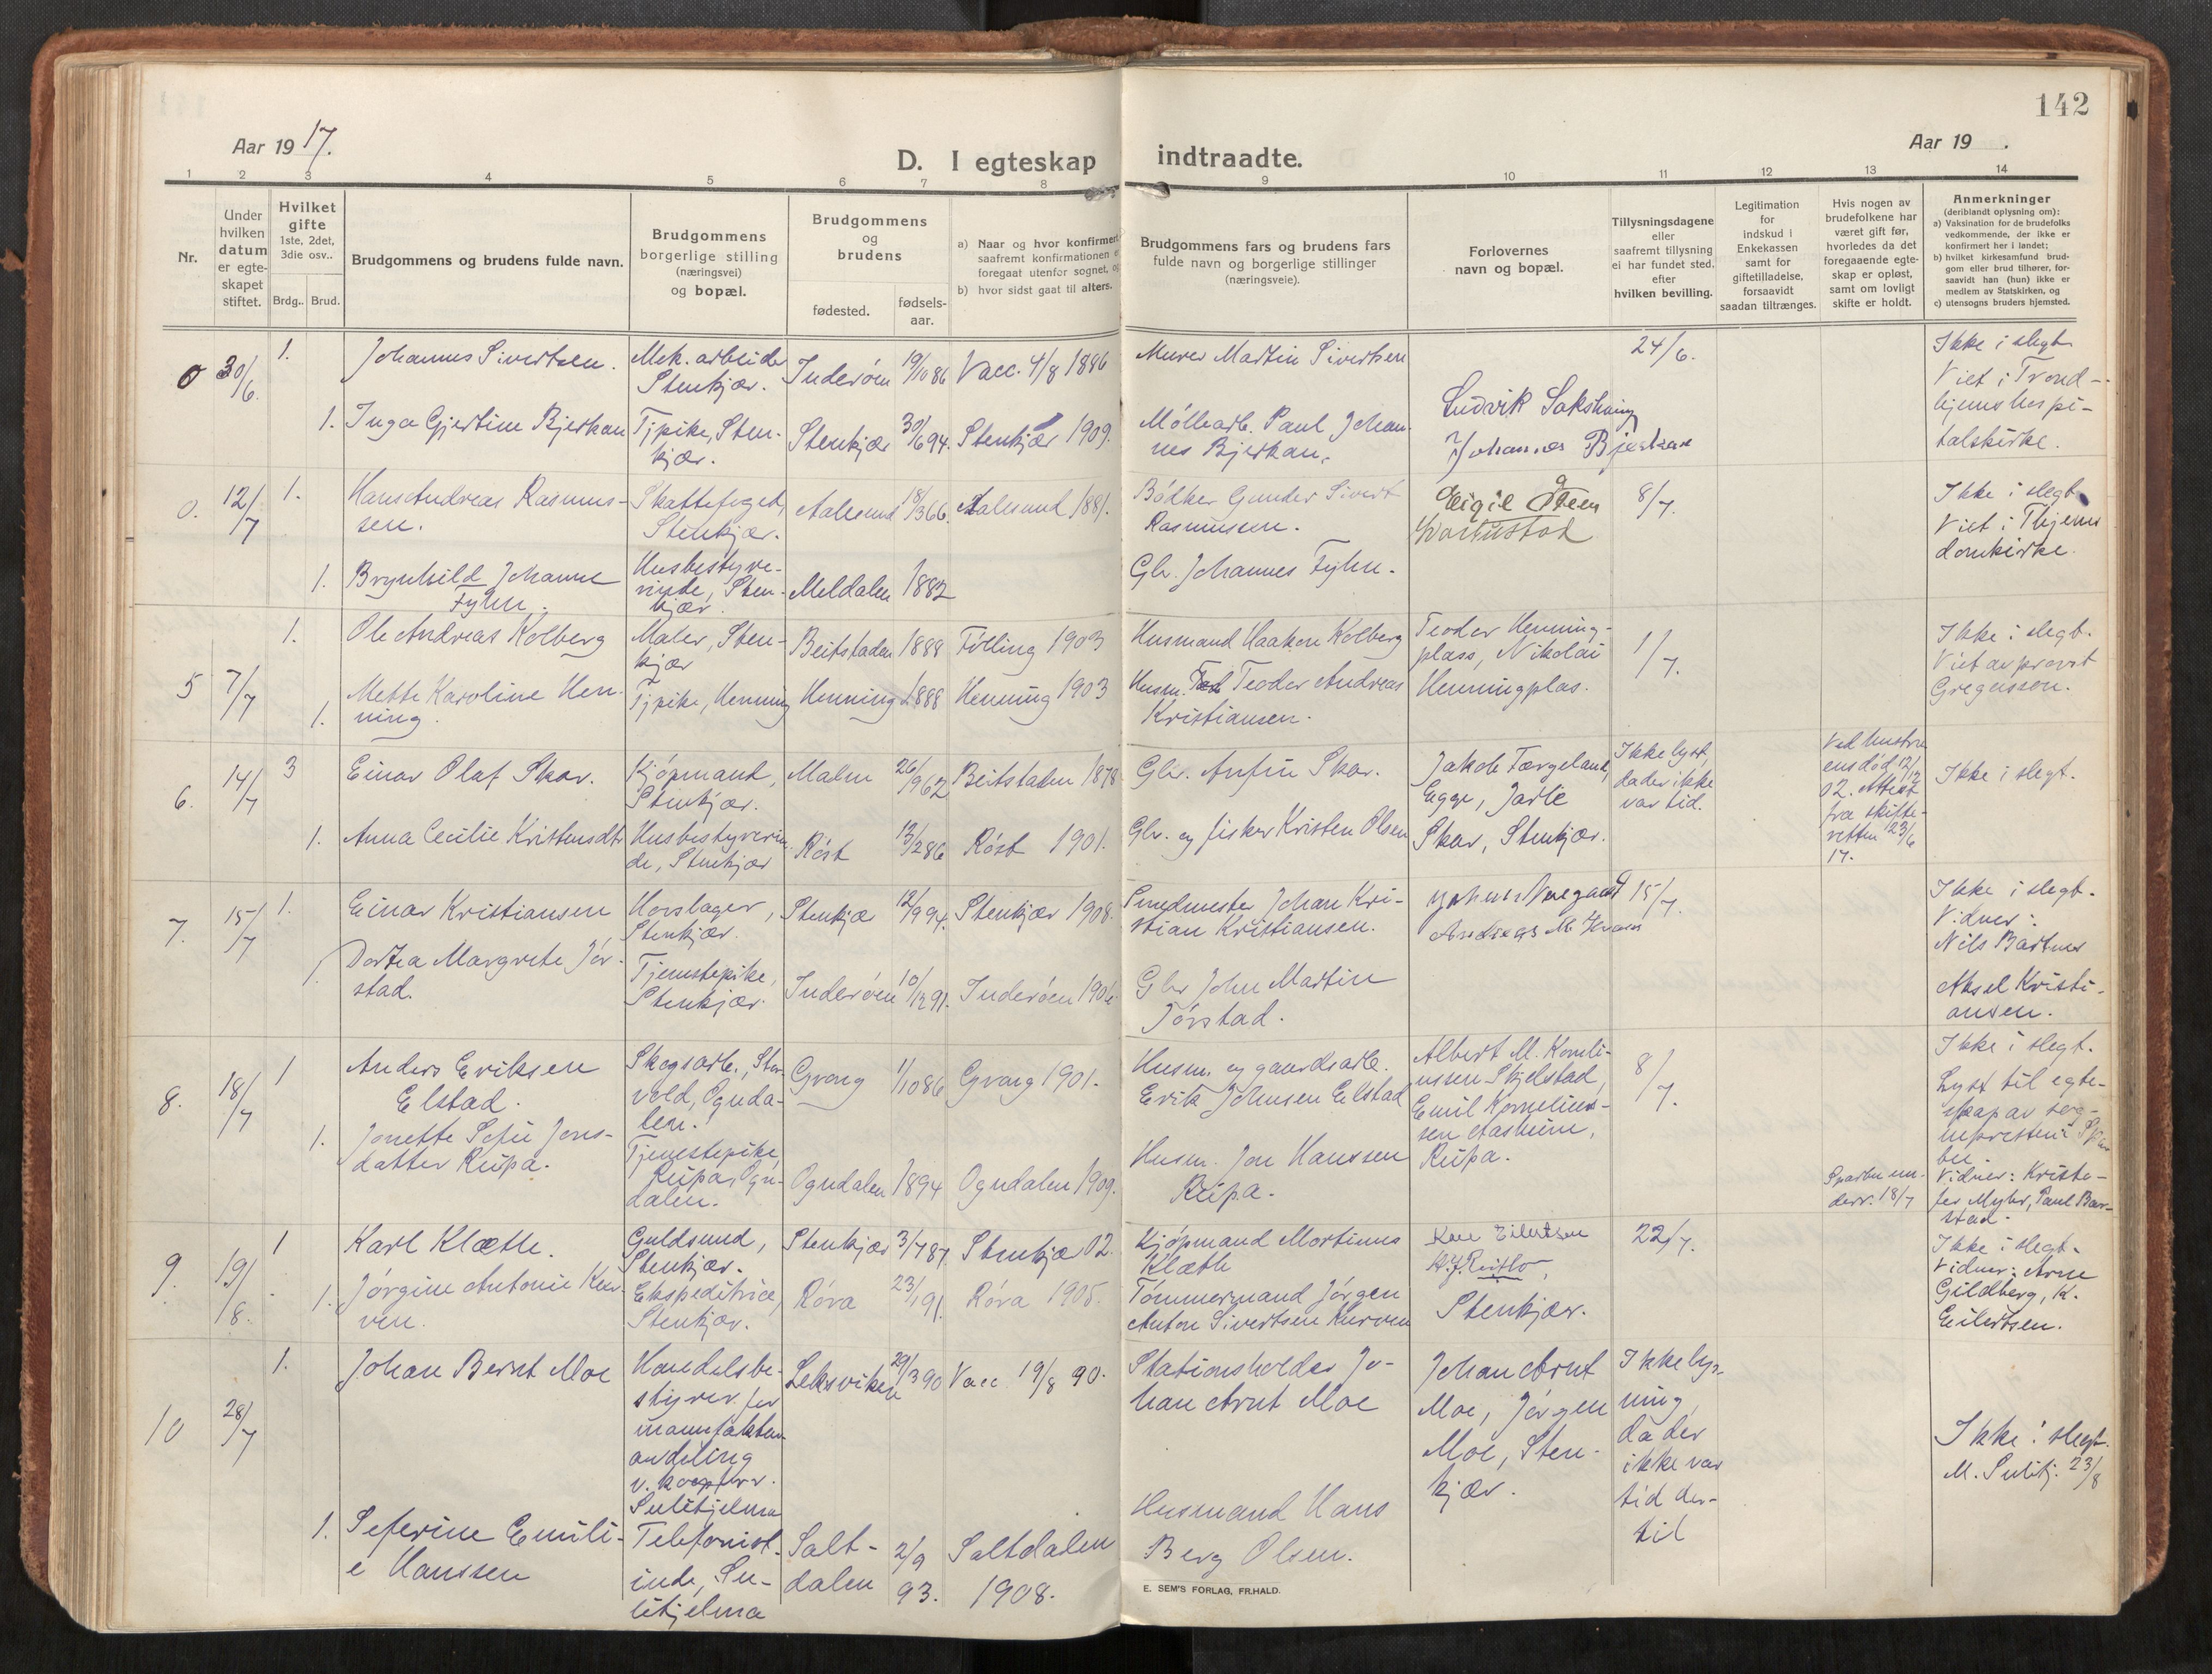 142
Aar 1917.
D. I egteskap indtraadte.
Aar 19 .
1 2 3 4 5 6 7 8 9 10 11 12 13 14
Nr.
Under hvilken datum er egte-skapet stiftet.
Hvilket gifte
1ste, 2det, 3die osv..
Brdg.. Brud.
Brudgommens og brudens fulde navn.
Brudgommens borgerlige stilling (næringsvei) og bopæl.
Brudgommens og brudens
fødested.
fødsels-aar.
a) Naar og hvor konfirmert
saafremt konfirmationen
foregaat utenfor sognet,
b) hvor sidst gaat til alters.
Brudgommens fars og brudens fars
fulde navn og borgerlige stillinger
(næringsveie).
Forlovernes
navn og bopæl.
Tillysningsdagene
eller
saafremt tillysning
ei har fundet sted,
efter
hvilken bevilling.
Legitimation
for
indskud i
Enkekassen
samt for
giftetilladelse,
forsaavidt
saadan tiltrænges.
Hvis nogen av
brudefolkene har
været gift før,
hvorledes da det
foregaaende egte-
skap er opløst,
samt om lovligt
skifte er holdt.
Anmerkninger
(deriblandt oplysning om):
a) Vaksination for de brudefolks
vedkommende, der ikke er
konfirmert her i landet;
b) hvilket kirkesamfund brud-
gom eller brud tilhører, for-
saavidt han (hun) ikke er
medlem av Statskirken, og
c) utensogns bruders hjemsted.
0 30/6. 1. Johannes Sivertsen. Mek. arbeider Stenkjær. Inderøen 19/10 86 Vacc. 4/8 1886 Murer Martin Sivertsen 24/6. Ikke i slegt
Viet i Trond-
hjems hospi-
talskirke.
1. Inga Gjertine Bjerkan Tj.pike, Sten-
kjær. Stenkjær 30/6 94. Stenkjær 1909. Møllearb. Paul Johan-
nes Bjerkan.
Ludvik Sakshaug
Johannes Bjerkan
0. 12/7 1. Hans Andreas Rasmus-
sen. Skattefoged,
Stenkjær. Aalesund 18/3 66. Aalesund 1881. Bødker Gunder Sivert
Rasmussen. Eigil Steen 8/7. Ikke i slegt
Viet i Thjems
domkirke.
1. Brynhild Johanne
Fyhn. Husbestyre-
rinde, Sten-
kjær. Meldalen 1882 Gbr. Johannes Fyhn.
5 7/7 1. Ole Andreas Kolberg Maler, Sten-
kjær Beitstaden 1888 Følling 1903 Husmand Haakon Kolberg Teodor Henning-
plass, Nikolai
Henningplas. 1/7. Ikke i slegt.
Viet av provst
Gregusson.
1. Mette Karoline Hen-
ning. Tj.pike, Henning Henning 1888 Henning 1903 Husm. Teodor Andreas
Kristiansen.
6. 14/7 3 Einar Olaf Skar. Kjøpmand,
Stenkjær. Malm 26/9 62 Beitstaden 1878 Gbr. Anfin Skar. Jakob Færgeland,
Egge, Jarle
Skar, Stenkjær. Ikke lyst,
da der ikke
var tid. Ved hustru
ens død 12/12
12. Attest
fra skifte-
retten 23/6
17. Ikke i slegt.
1. Anna Cecilie Kristensdtr Husbestyrerin-
de, Stenkjær Røst 13/2 86 Røst 1901. Gbr. og fisker Kristen Olsen
7. 15/7 1. Einar Kristiansen Hovslager,
Stenkjær. Stenkjær 12/9 94. Stenkjær 1908. Smedmester Johan Kri-
stian Kristiansen. 15/7. Ikke i slegt.
Vidner:
Nils Bartnes
Aksel Kristi-
ansen.
1. Dortea Margrete Jør-
stad. Tjenestepike,
Stenkjær. Inderøen 10/12 91. Inderøen 1906. Gbr John Martin
Jørstad.
8. 18/7 1 Anders Eriksen
Elstad. Skogsarb., Stor-
vold, Ognda-
len. Grong 1/10 86 Grong 1901. Husm. og gaardsarb.
Erik Johnsen Elstad Albert M. Korneli-
ussen Skjelstad,
Emil Kornelius-
sen Aasheim,
Rupa. 8/7. Ikke i slegt.
Lyst til egte-
skap av sog-
nepresten i Spar
bu.
Vidner: Kristo-
fer Myhr, Paul Bar-
stad.
1. Jonette Sofie Jons-
datter Rupa. Tjenestepike
Rupa, Ogn-
dalen. Ogndalen 1894 Ogndalen 1909. Husm. Jon Hanssen
Rupa. Sparbu un-
derr. 18/7
9. 19/8. 1 Karl Klætte. Guldsmed,
Stenkjær. Stenkjær 3/7 87. Stenkjæ 02. Kjøpmand Mortinus
Klætte 22/7. Ikke i slegt.
Vidner: Arne
Gildberg, K.
Eilertsen.
1. Jørgine Antonie Kur-
ven. Ekspeditrice,
Stenkjær. Røra 23/1 91. Røra 1905. Tømmermand Jørgen
Anton Sivertsen Kurven Stenkjær.
10 28/7 1. Johan Bernt Moe Handelsbe-
styrer for
manufaktur
avdeling
v.
Sulitjelma Leksviken 29/3 90 Vacc. 19/8 90. Stationsholder Jo-
han Arnt Moe Johan Arnt
Moe, Jørgen
Moe, Sten-
kjær. Ikke lys-
ning,
da der
ikke var
tid der-
til Ikke i slegt.
M. Sulitj. 23/8
1. Seferine Emili-
e Hanssen Telefonist-
inde, Su-
litjelma Salt-
dalen 2/9
93. Saltdalen
1908. Husmand Hans
Berg Olsen.
E. SEM'S FORLAG, FR.HALD.